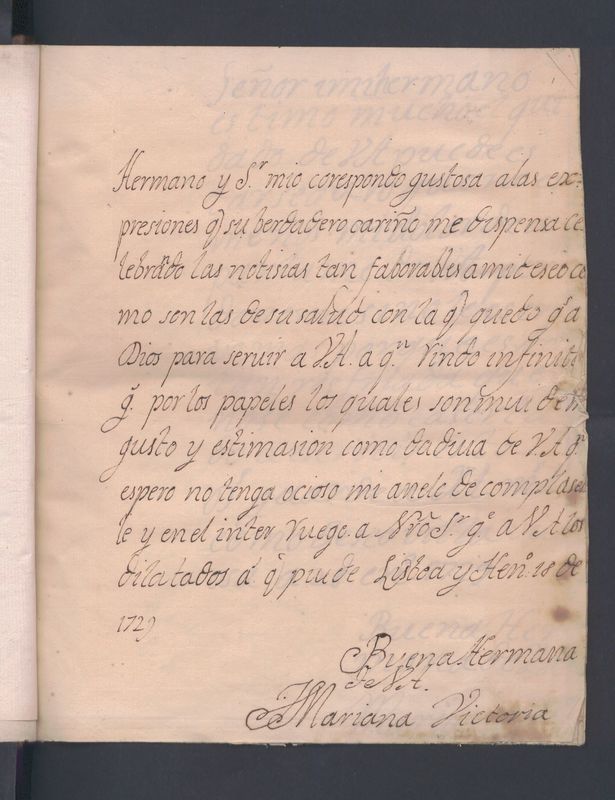 Hermano y S.r mio corespondo gustosa alas ex-
presiones q̃ su berdadero cariño me dispensa ce
lebrãdo las notisias tan faborables amideseo co
mo son las desusalud con la q̃ quedo g.s a
Dios para seruir a V.A. a q.n Vindo infinitas
g.s por los papeles los quales son mui de m
gusto y estimasion como dadiua de V.A q.n
espero no tenga ocioso mi anelo de complaser
le y en el inter Ruego a Nrõ S.r g.e a V.A los
dilatados a.s q̃ puede Lisboa y Hen.o 18 de
1729
Buena Hermana
de V.A.
Mariana Victoria